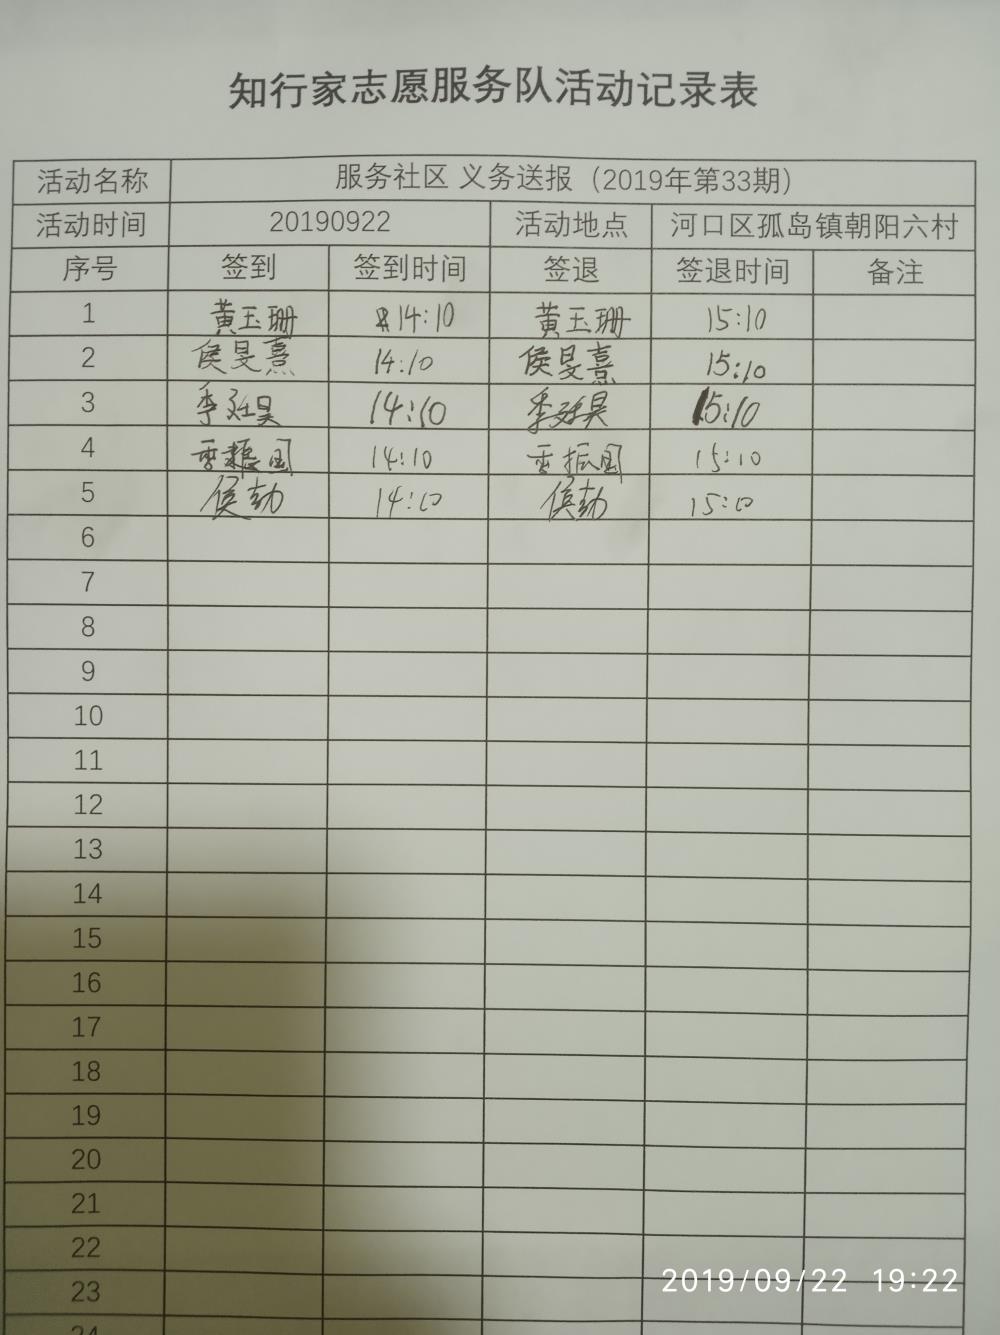 知行家志愿服务队活动记录表
活动名称 服务社区 义务送报（2019年第33期）
活动时间 20190922 活动地点 河口区孤岛镇朝阳六村
序号 签到 签到时间 签退 签退时间 备注
1 黄玉珊 14:10 黄玉珊 15:10
2 侯旻熹 14:10 侯旻熹 15:10
3 李廷昊 14:10 李廷昊 15:10
4 14:10 15:10
5 侯勃 14:10 侯勃 15:10
6
7
8
9
10
11
12
13
14
15
16
17
18
19
20
21
22
23
24
2019/09/22 19:22